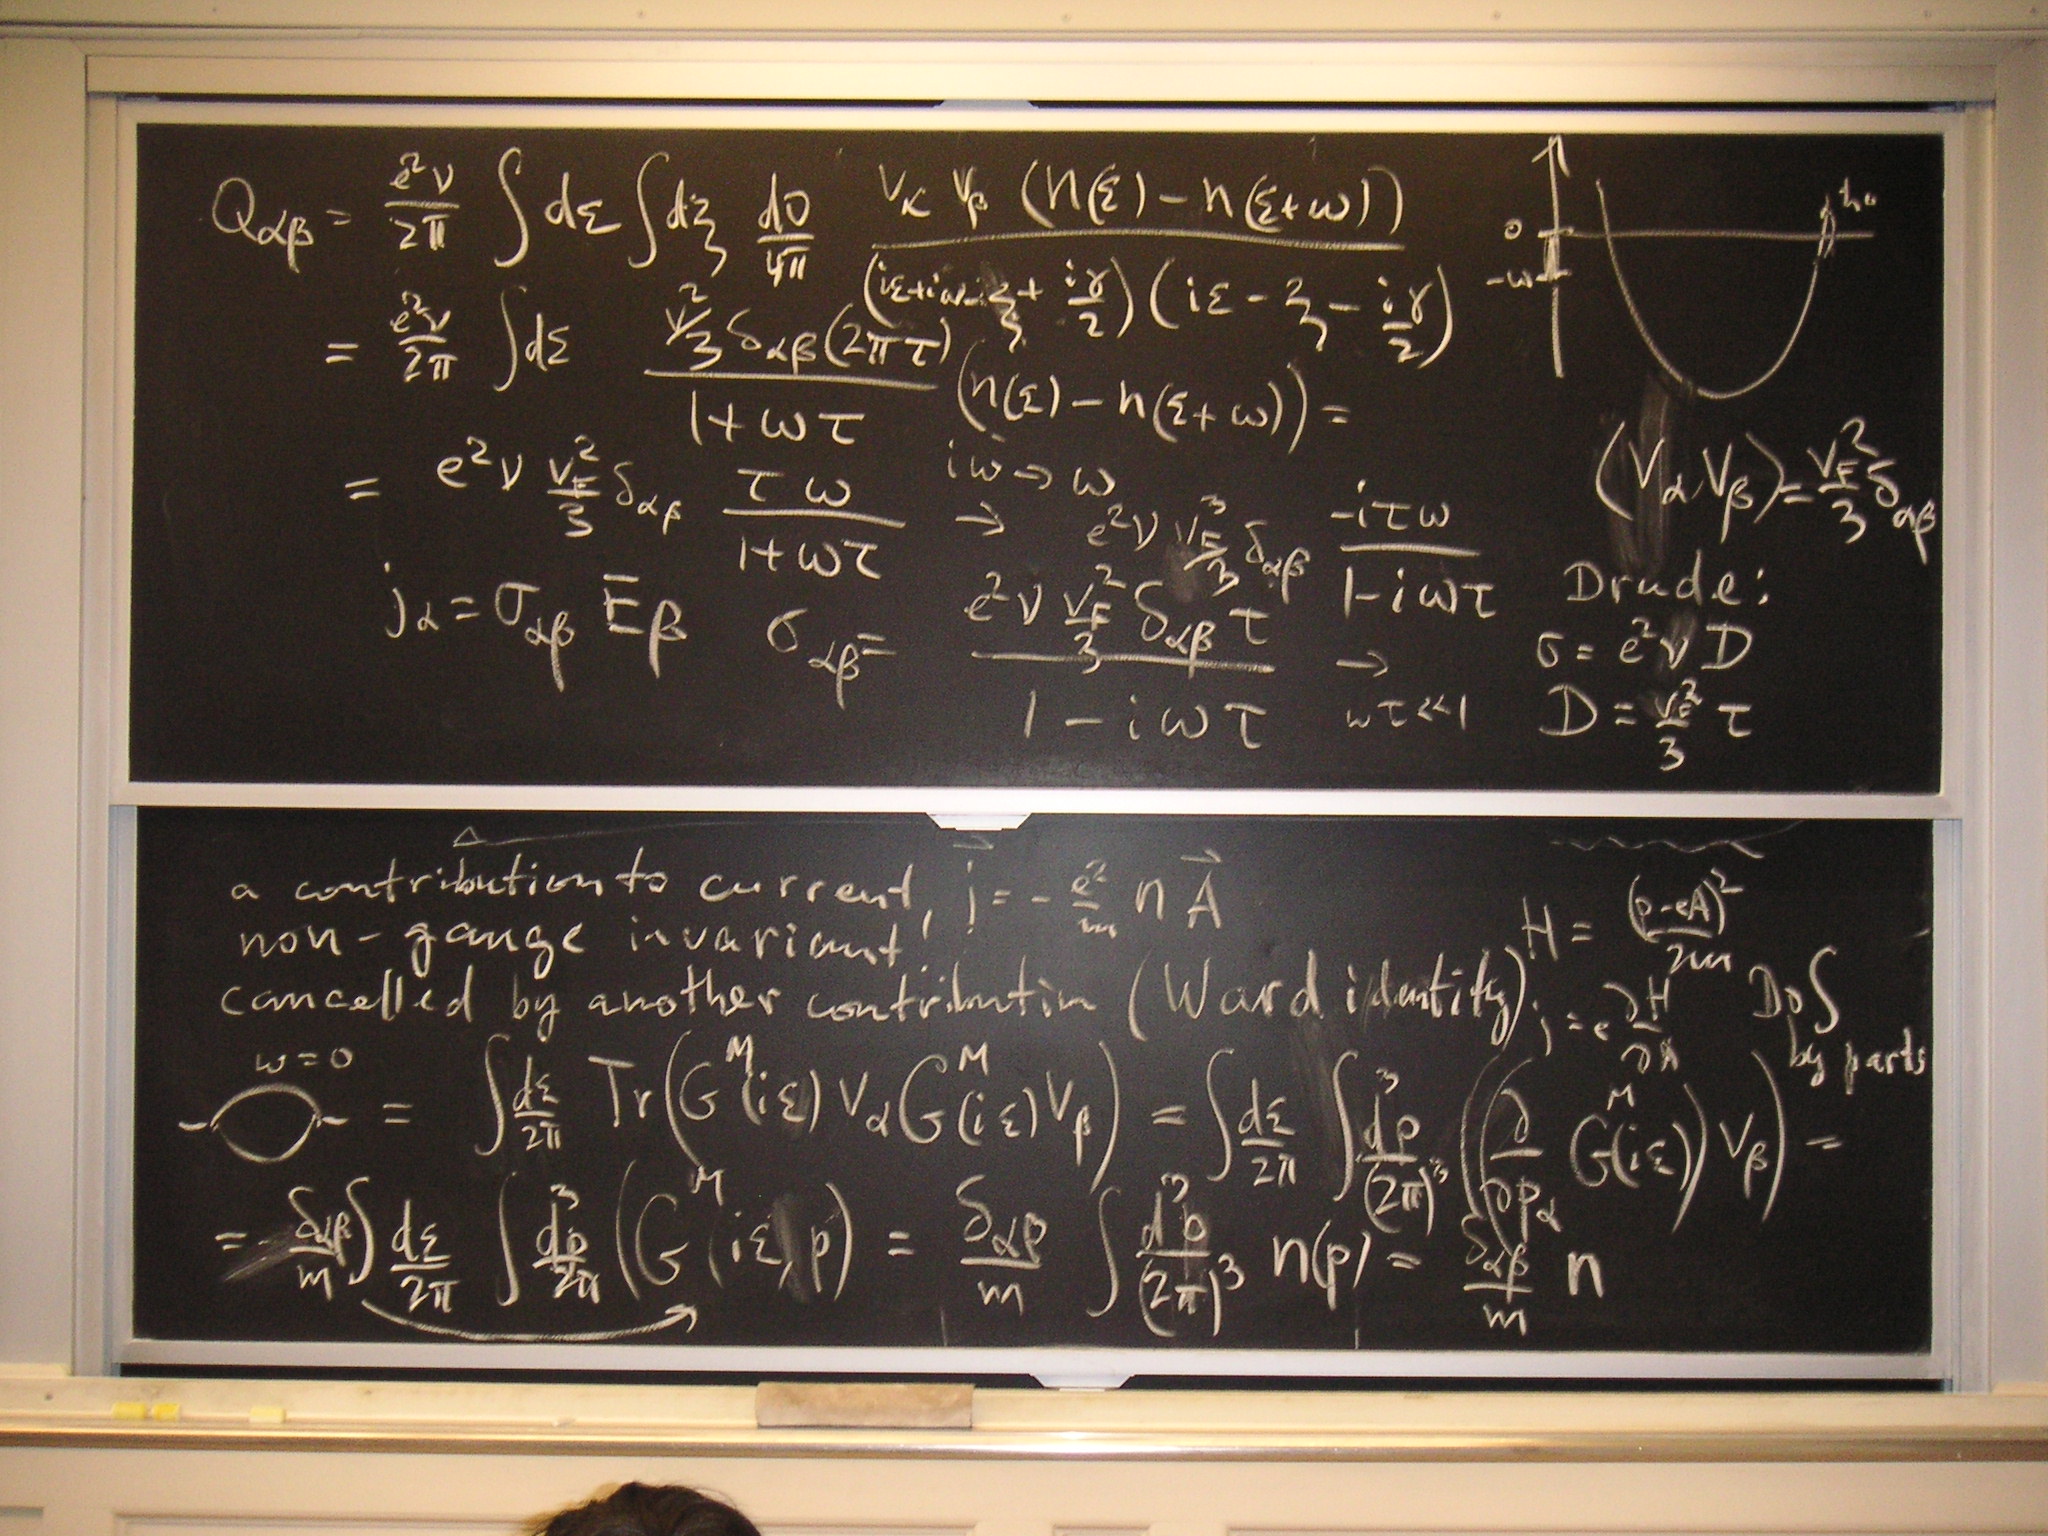 Q_{αβ} = \frac{e²ν}{2π} ∫dε ∫dξ \frac{dO}{4π} \frac{v_α v_β (n(ε) − n(ε+ω))}{(iε+iω−ξ+\frac{iγ}{2})(iε−ξ−\frac{iγ}{2})}
= \frac{e²ν}{2π} ∫dε \frac{\frac{v²}{3} δ_{αβ}(2πτ)}{1+ωτ} (n(ε) − n(ε+ω)) =
= e²ν \frac{v_F²}{3} δ_{αβ} \frac{τω}{1+ωτ} iω→ω → e²ν \frac{v_F³}{3} δ_{αβ} \frac{-iτω}{1−iωτ}
j_α = σ_{αβ} E_β σ_{αβ} = \frac{e²ν \frac{v_F²}{3} δ_{αβ} τ}{1−iωτ} → ωτ≪1
0
−ω
⟨v_α v_β⟩ = \frac{v_F²}{3} δ_{αβ}
Drude:
σ = e²ν D
D = \frac{v_F²}{3} τ
a contribution to current, \vec{j} = −\frac{e²}{m} n \vec{A}
non-gauge invariant!
cancelled by another contribution (Ward identity)
H = \frac{(p−eA)²}{2m}
j = e \frac{∂H}{∂A}
Do ∫
by parts
ω=0
= ∫\frac{dε}{2π} Tr(G^M(iε) v_α G^M(iε) v_β) = ∫\frac{dε}{2π} ∫\frac{d³p}{(2π)³} ((\frac{∂}{∂p_α} G^M(iε)) v_β) =
= \frac{δ_{αβ}}{m} ∫\frac{dε}{2π} ∫\frac{d³p}{2π} (G^M(iε, p) = \frac{δ_{αβ}}{m} ∫\frac{d³p}{(2π)³} n(p) = \frac{δ_{αβ}}{m} n